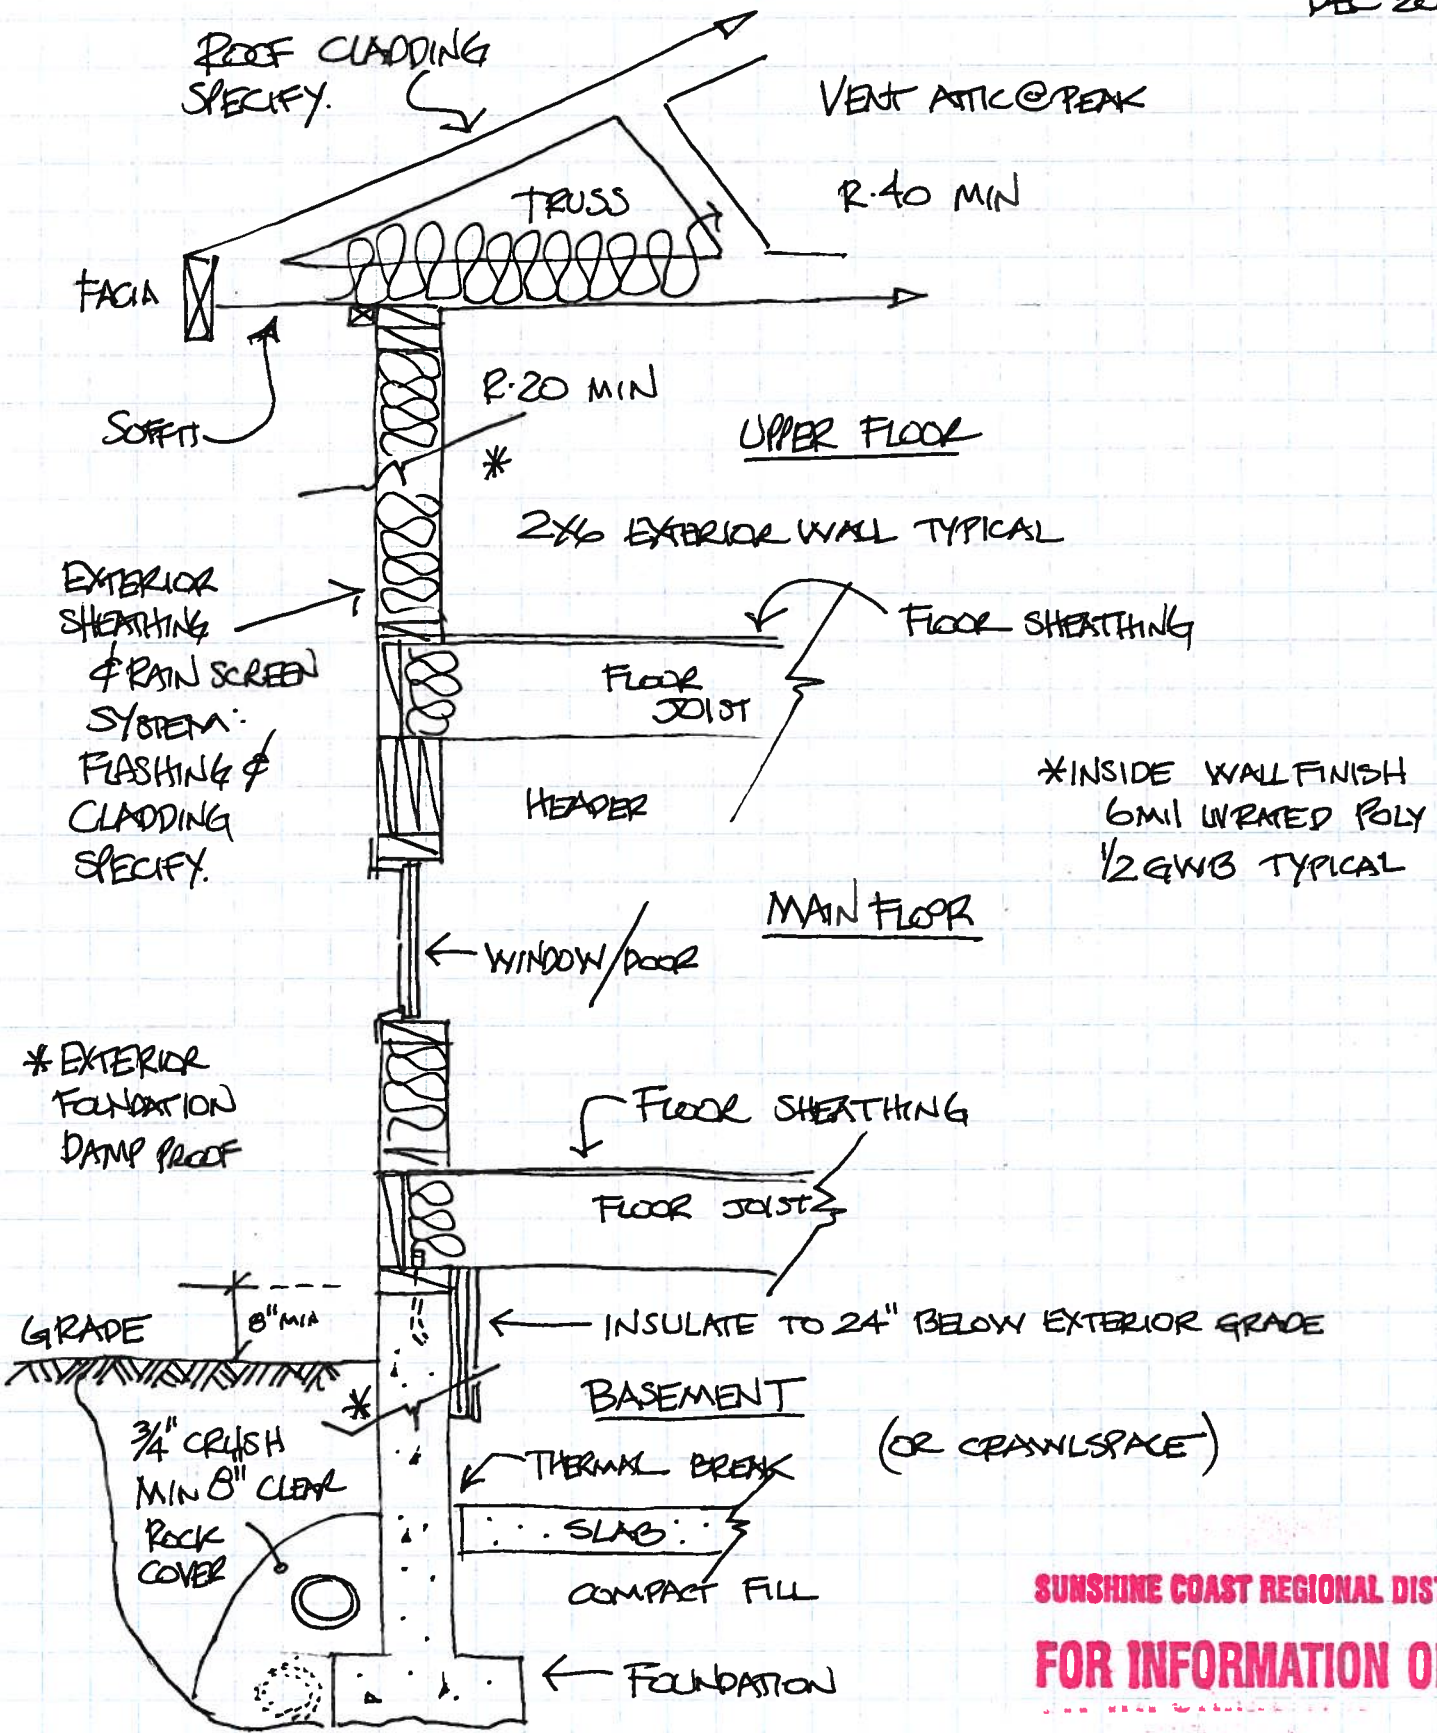 DEC 20
ROOF CLADDING
SPECIFY.
VENT ATTIC @ PEAK
R-40 MIN
TRUSS
FACIA
SOFFIT
R-20 MIN
*
UPPER FLOOR
2x6 EXTERIOR WALL TYPICAL
EXTERIOR
SHEATHING
& RAIN SCREEN
SYSTEM:
FLASHING &
CLADDING
SPECIFY.
FLOOR SHEATHING
FLOOR
JOIST
HEADER
*INSIDE WALL FINISH
6mil UV RATED POLY
1/2 GWB TYPICAL
MAIN FLOOR
WINDOW/DOOR
* EXTERIOR
FOUNDATION
DAMP PROOF
FLOOR SHEATHING
FLOOR JOIST
GRADE
8" MIN
INSULATE TO 24" BELOW EXTERIOR GRADE
*
BASEMENT
(OR CRAWLSPACE)
3/4" CRUSH
MIN 8" CLEAR
ROCK
COVER
THERMAL BREAK
SLAB
COMPACT FILL
FOUNDATION
SUNSHINE COAST REGIONAL DIS
FOR INFORMATION O